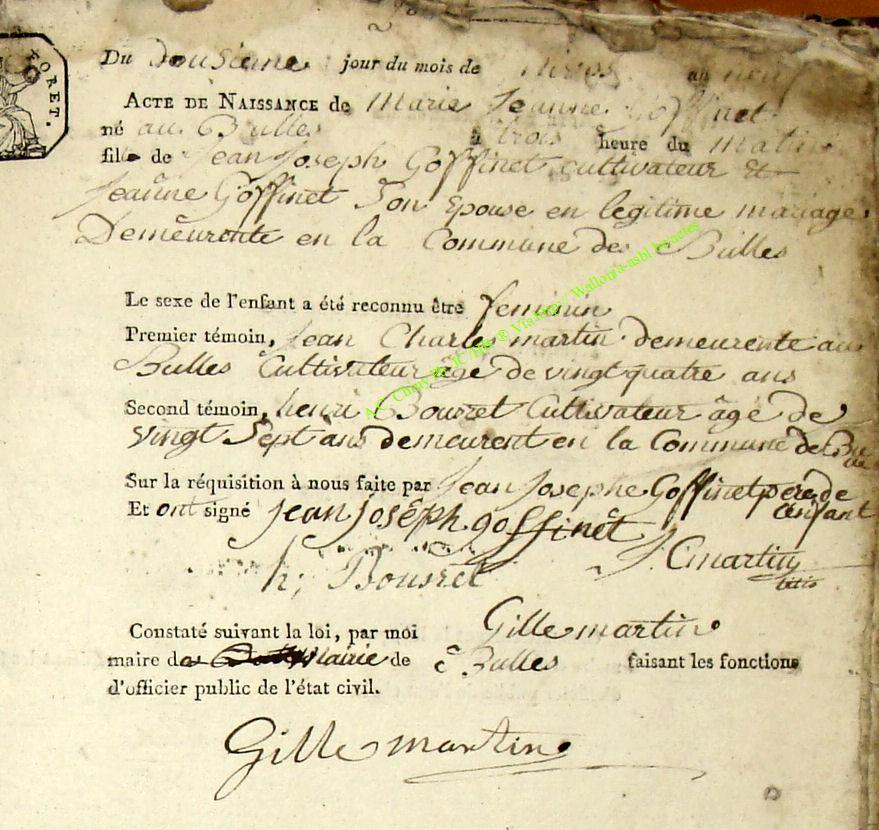 FORET.
Du dousieme jour du mois de nivos an neuf
ACTE DE NAISSANCE de Marie Jeanne Goffinet
né au Bulles à trois heure du matin
fille de Jean Joseph Goffinet cultivateur Et
Jeanne Goffinet Son Epouse en legitime mariage
Demeurente en la Commune des Bulles
Le sexe de l'enfant a été reconnu être feminin
Premier témoin, Jean Charles martin demeurente au
Bulles Cultivateur âgé de vingt quatre ans
Second témoin, henri Bousret Cultivateur âgé de
vingt Sept ans demeurent en la Commune de
Sur la réquisition à nous faite par Jean Josephe Goffinet pere de
l'enfant
Et ont signé Jean joseph goffinet
J. C martin
h; Bousret
Constaté suivant la loi, par moi Gille martin
maire de Mairie de Bulles faisant les fonctions
d'officier public de l'état civil.
Gille martin